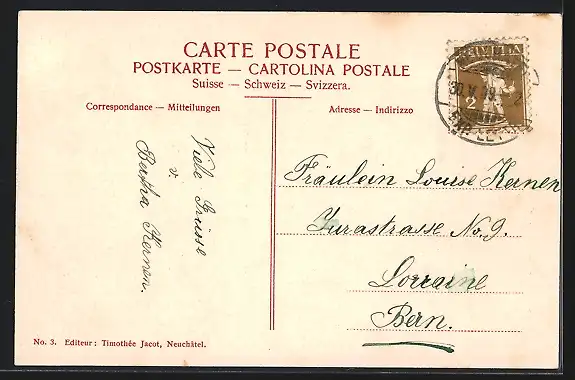 CARTE POSTALE
POSTKARTE — CARTOLINA POSTALE
Suisse — Schweiz — Svizzera.
Correspondance — Mitteilungen
Adresse — Indirizzo
HELVETIA
2
Viele Grüsse
v
Bertha Kernen.
Fräulein Louise Kernen
Jurastrasse No. 9.
Lorraine
Bern.
No. 3. Editeur: Timothée Jacot, Neuchâtel.